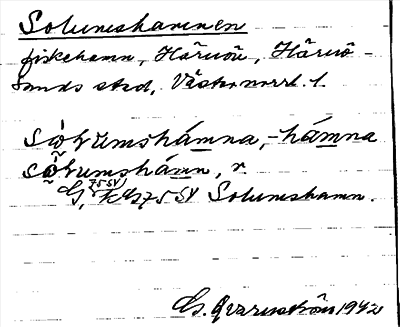 Solumshamnen
fiskehamn, Härnön, Härnö-
sands stad, Västernorrl. l.
sò̀ɽumshámna, -hámna
sò̃ɽumshámn, r.
G, 75 SV Solumshamn.
G. Qvarnström 1942